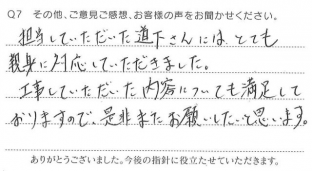 Q7 その他、ご意見ご感想、お客様の声をお聞かせください。
担当していただいた道下さんには、とても
親身に対応していただきました。
工事していただいた内容についても満足して
おりますので、是非またお願いしたいと思います。
ありがとうございました。今後の指針に役立たせていただきます。